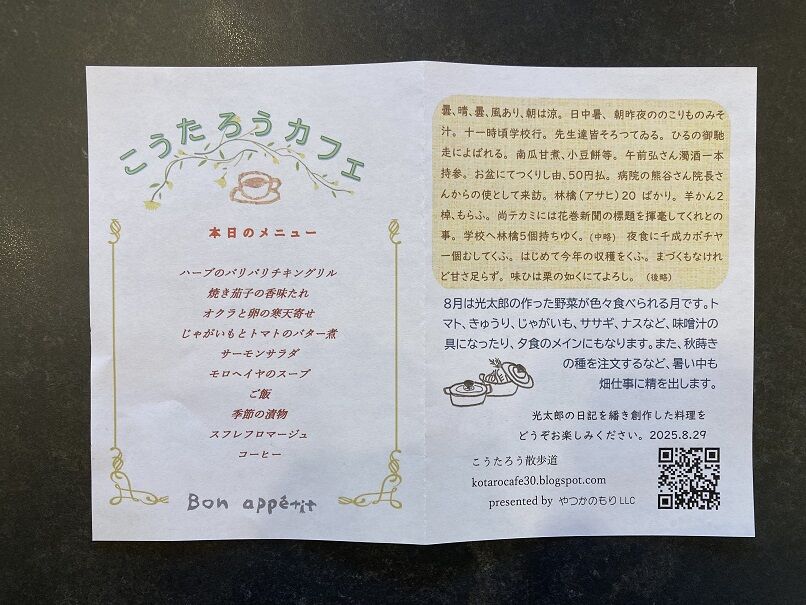 こうたろうカフェ
本日のメニュー
ハーブのパリパリチキングリル
焼き茄子の香味たれ
オクラと卵の寒天寄せ
じゃがいもとトマトのバター煮
サーモンサラダ
モロヘイヤのスープ
ご飯
季節の漬物
スフレフロマージュ
コーヒー
Bon appétit
曇、晴、曇、風あり、朝は涼。 日中暑、 朝昨夜ののこりものみそ
汁。 十一時頃学校行。 先生達皆そろつてゐる。 ひるの御馳
走によばれる。 南瓜甘煮、小豆餅等。 午前弘さん濁酒一本
持参。 お盆にてつくりし由、50円払。 病院の熊谷さん院長さ
んからの使として来訪。 林檎(アサヒ)20 ばかり。 羊かん2
棹、もらふ。 尚テカミには花巻新聞の標題を揮毫してくれとの
事。 学校へ林檎5個持ちゆく。(中略) 夜食に千成カボチヤ
一個むしてくふ。 はじめて今年の収穫をくふ。 まづくもなけれ
ど甘さ足らず。 味ひは栗の如くにてよろし。 (後略)
8月は光太郎の作った野菜が色々食べられる月です。ト
マト、きゅうり、じゃがいも、ササギ、ナスなど、味噌汁の
具になったり、夕食のメインにもなります。また、秋蒔き
の種を注文するなど、暑い中も
畑仕事に精を出します。
光太郎の日記を繙き創作した料理を
どうぞお楽しみください。2025.8.29
こうたろう散歩道
kotarocafe30.blogspot.com
presented by やつかのもりLLC